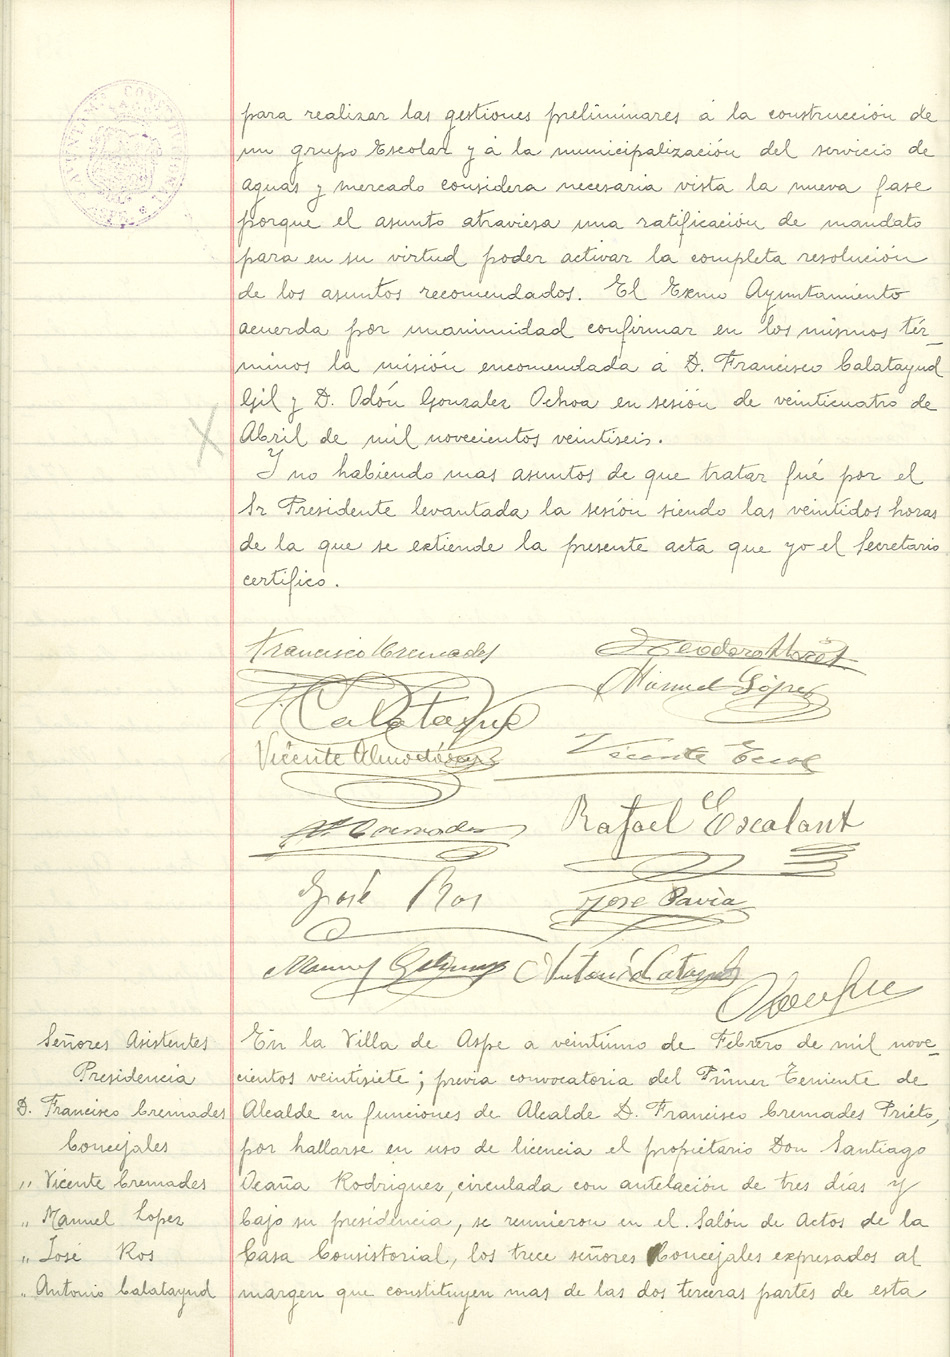 para realizar las gestiones preliminares á la construcción de
un grupo Escolar y á la municipalización del servicio de
aguas y mercado considera necesaria vista la nueva fase
porque el asunto atraviesa una ratificación de mandato
para en su virtud poder activar la completa resolución
de los asuntos recomendados. El Exmo Ayuntamiento
acuerda por unanimidad confirmar en los mismos tér-
minos la misión encomendada á D. Francisco Calatayud
Gil y D. Odón Gonzalez Ochoa en sesión de veinticuatro de
Abril de mil novecientos veintiseis.
Y no habiendo mas asuntos de que tratar fué por el
Sr Presidente levantada la sesión siendo las veintidos horas
de la que se extiende la presente acta que yo el Secretario
certifico.
Francisco Cremades
Teodoro
Manuel López
Calatayud
Vicente Almodóvar
Vicente
Cremades
Rafael Escalant
José Ros
José Pavia
Manuel
Antonio Calatayud
Señores Asistentes
Presidencia
D. Francisco Cremades
Concejales
" Vicente Cremades
" Manuel Lopez
" José Ros
" Antonio Calatayud
En la Villa de Aspe a veintiuno de Febrero de mil nove-
cientos veintisiete; previa convocatoria del Primer Teniente de
Alcalde en funciones de Alcalde D. Francisco Cremades Prieto,
por hallarse en uso de licencia el propietario Don Santiago
Ocaña Rodriguez, circulada con antelación de tres días y
bajo su presidencia, se reunieron en el Salón de Actos de la
Casa Consistorial, los trece señores Concejales expresados al
margen que constituyen mas de las dos terceras partes de esta